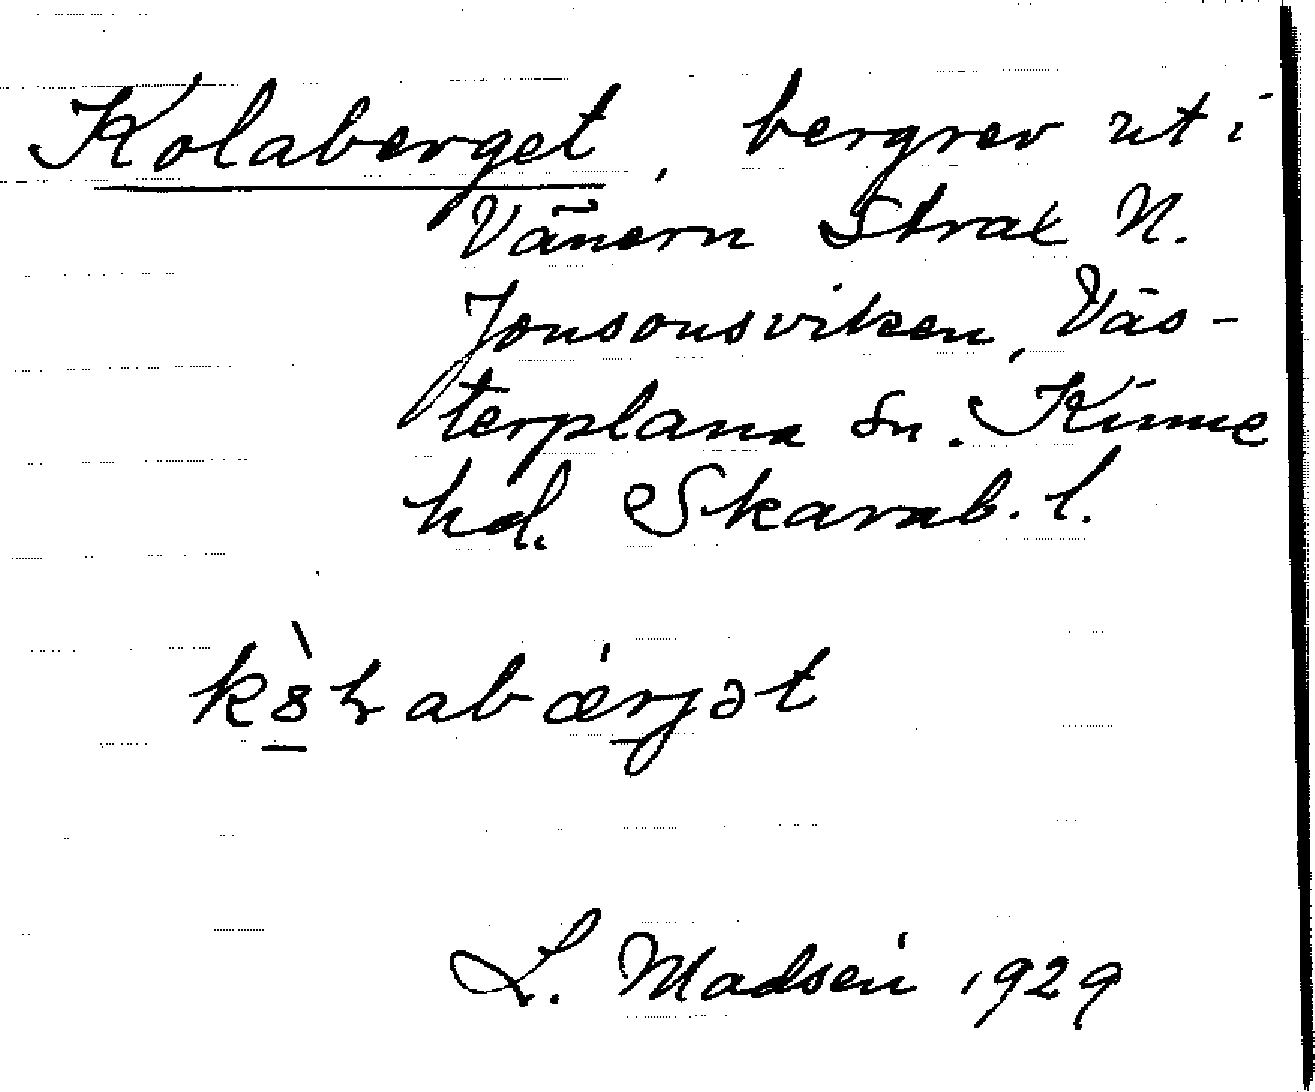 Kolaberget, bergrev ut i
Vänern Strax N.
Jonsonsviken, Väs-
terplana sn. Kinne
hd. Skarab. l.
L. Madsén 1929